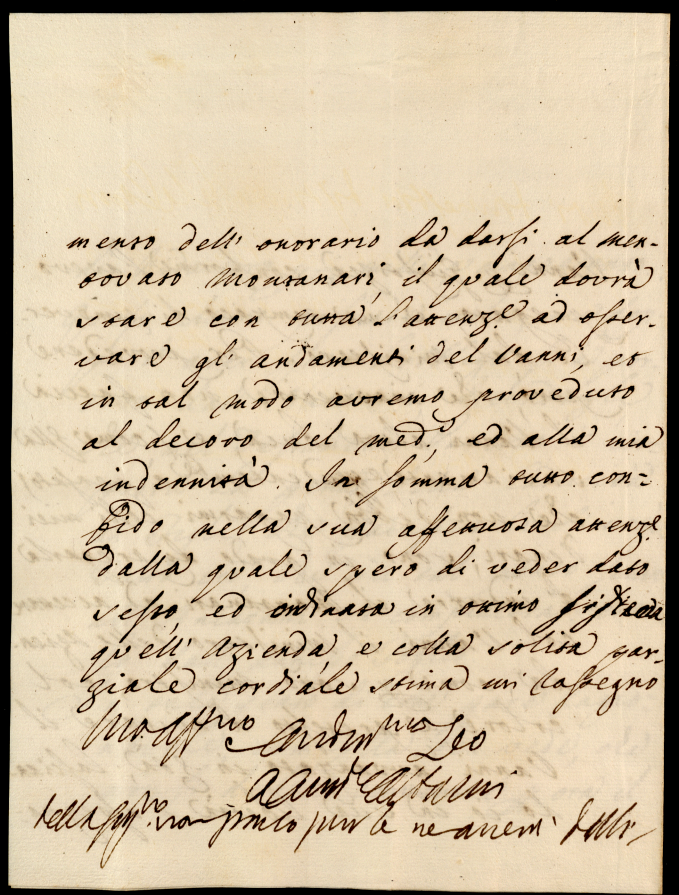 mento dell' onorario da darsi al men-
tovato Montanari, il quale dovrà
stare con tutta l'attenz.e ad osser-
vare gl' andamenti del Vanni, et
in tal modo avremo proveduto
al decoro del med.o, ed alla mia
indennità. In somma tutto con-
fido nella sua affettuosa attenz.e
dalla quale spero di veder dato
sesto, ed ordinata in ottimo sistema
quell' Azienda, e colla solita par-
ziale cordiale stima mi rassegno